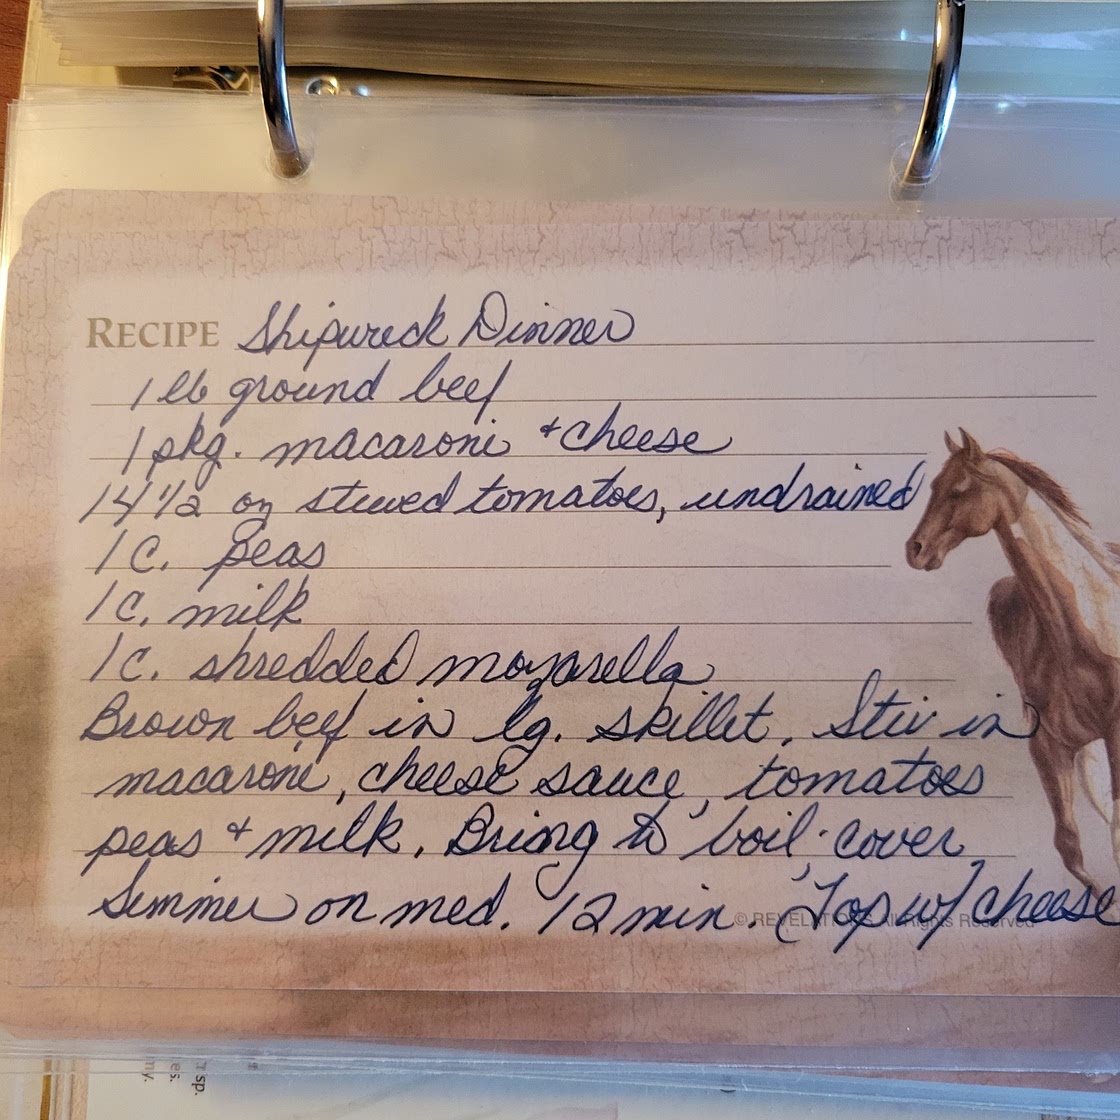 RECIPE Shipwreck Dinner
1 lb ground beef
1 pkg. macaroni + cheese
14 1/2 oz stewed tomatoes, undrained
1 C. peas
1 C. milk
1 C. shredded mozarella
Brown beef in lg. skillet. Stir in
macaroni, cheese sauce, tomatoes
peas + milk. Bring to boil, cover,
Simmer on med. 12 min. Top w/ cheese
© REVELATIONS All Rights Reserved
r sp.
es.
my.